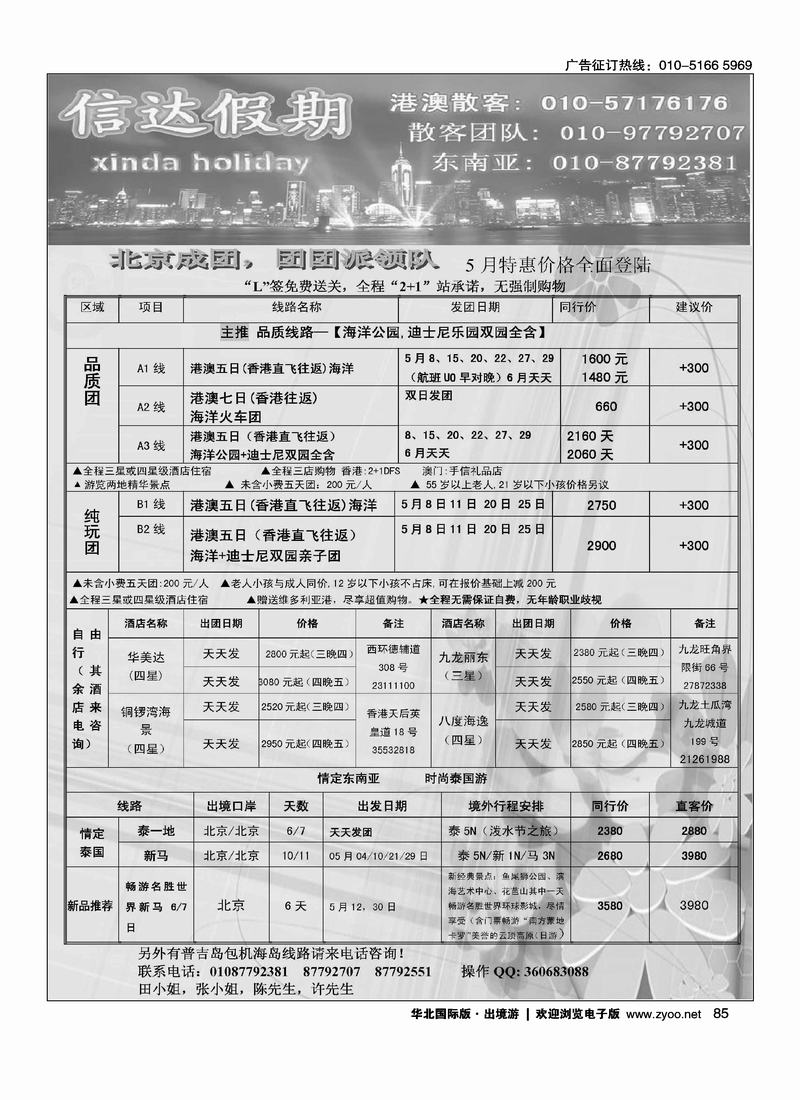 广告征订热线：010-5166 5969
信达假期
xinda holiday
港澳散客：010-57176176
散客团队：010-97792707
东南亚：010-87792381
北京成团，团团派领队 5月特惠价格全面登陆
“L”签免费送关，全程“2+1”站承诺，无强制购物
区域 项目 线路名称 发团日期 同行价 建议价
主推 品质线路—【海洋公园,迪士尼乐园双园全含】
品质团
A1 线 港澳五日(香港直飞往返)海洋 5月8、15、20、22、27、29 1600 元 +300
（航班 UO 早对晚）6 月天天 1480 元
A2 线 港澳七日(香港往返) 双日发团 660 +300
海洋火车团
A3 线 港澳五日（香港直飞往返） 8、15、20、22、27、29 2160 天 +300
海洋公园+迪士尼双园全含 6 月天天 2060 天
▲全程三星或四星级酒店住宿 ▲全程三店购物 香港:2+1DFS 澳门:手信礼品店
▲游览两地精华景点 ▲ 未含小费五天团：200 元/人 ▲ 55 岁以上老人,21 岁以下小孩价格另议
纯玩团
B1 线 港澳五日(香港直飞往返)海洋 5月8日11日 20日 25日 2750 +300
B2 线 港澳五日（香港直飞往返） 5月8日11日 20日 25日 2900 +300
海洋+迪士尼双园亲子团
▲未含小费五天团:200 元/人 ▲老人小孩与成人同价,12 岁以下小孩不占床,可在报价基础上减 200 元
▲全程三星或四星级酒店住宿 ▲赠送维多利亚港，尽享超值购物。★全程无需保证自费，无年龄职业歧视
自由行（其余酒店来电咨询）
酒店名称 出团日期 价格 备注 酒店名称 出团日期 价格 备注
华美达（四星） 天天发 2800 元起(三晚四) 西环德辅道308 号23111100 九龙丽东（三星） 天天发 2380 元起(三晚四) 九龙旺角界限街 66 号27872338
天天发 3080 元起（四晚五） 天天发 2550 元起（四晚五）
铜锣湾海景（四星） 天天发 2520 元起(三晚四) 香港天后英皇道 18 号35532818 八度海逸（四星） 天天发 2580 元起(三晚四) 九龙土瓜湾九龙城道199 号21261988
天天发 2950 元起（四晚五） 天天发 2850 元起（四晚五）
情定东南亚 时尚泰国游
线路 出境口岸 天数 出发日期 境外行程安排 同行价 直客价
情定泰国
泰一地 北京/北京 6/7 天天发团 泰 5N（泼水节之旅） 2380 2880
新马 北京/北京 10/11 05 月 04/10/21/29 日 泰 5N/新 1N/马 3N 2680 3980
新品推荐 畅游名胜世界新马 6/7日 北京 6 天 5 月 12，30 日 3580 3980
新经典景点：鱼尾狮公园、滨
海艺术中心、花芭山其中一天
畅游名胜世界环球影城，尽情
享受（含门票畅游“南方蒙地
卡罗”美誉的云顶高原(日游）
另外有普吉岛包机海岛线路请来电话咨询！
联系电话：01087792381 87792707 87792551 操作 QQ: 360683088
田小姐，张小姐，陈先生，许先生
华北国际版·出境游 | 欢迎浏览电子版 www.zyoo.net 85